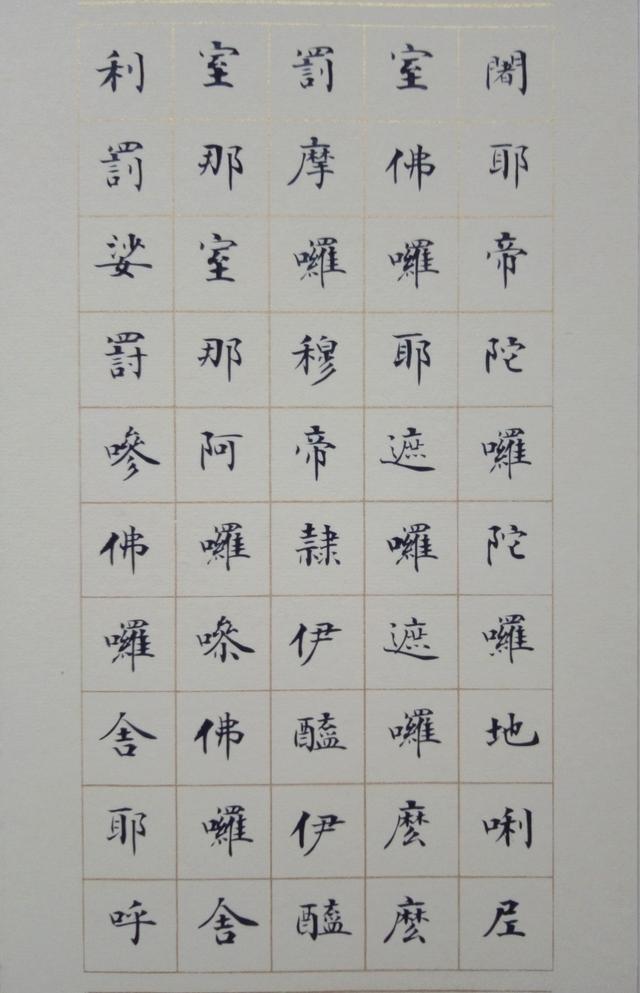 闍耶帝陀囉陀囉地唎尼
室佛囉耶遮囉遮囉麼麼
罰摩囉穆帝隸伊醘伊醘
室那室那阿囉嘇佛囉舍
利罰娑罸嘇佛囉舍耶呼